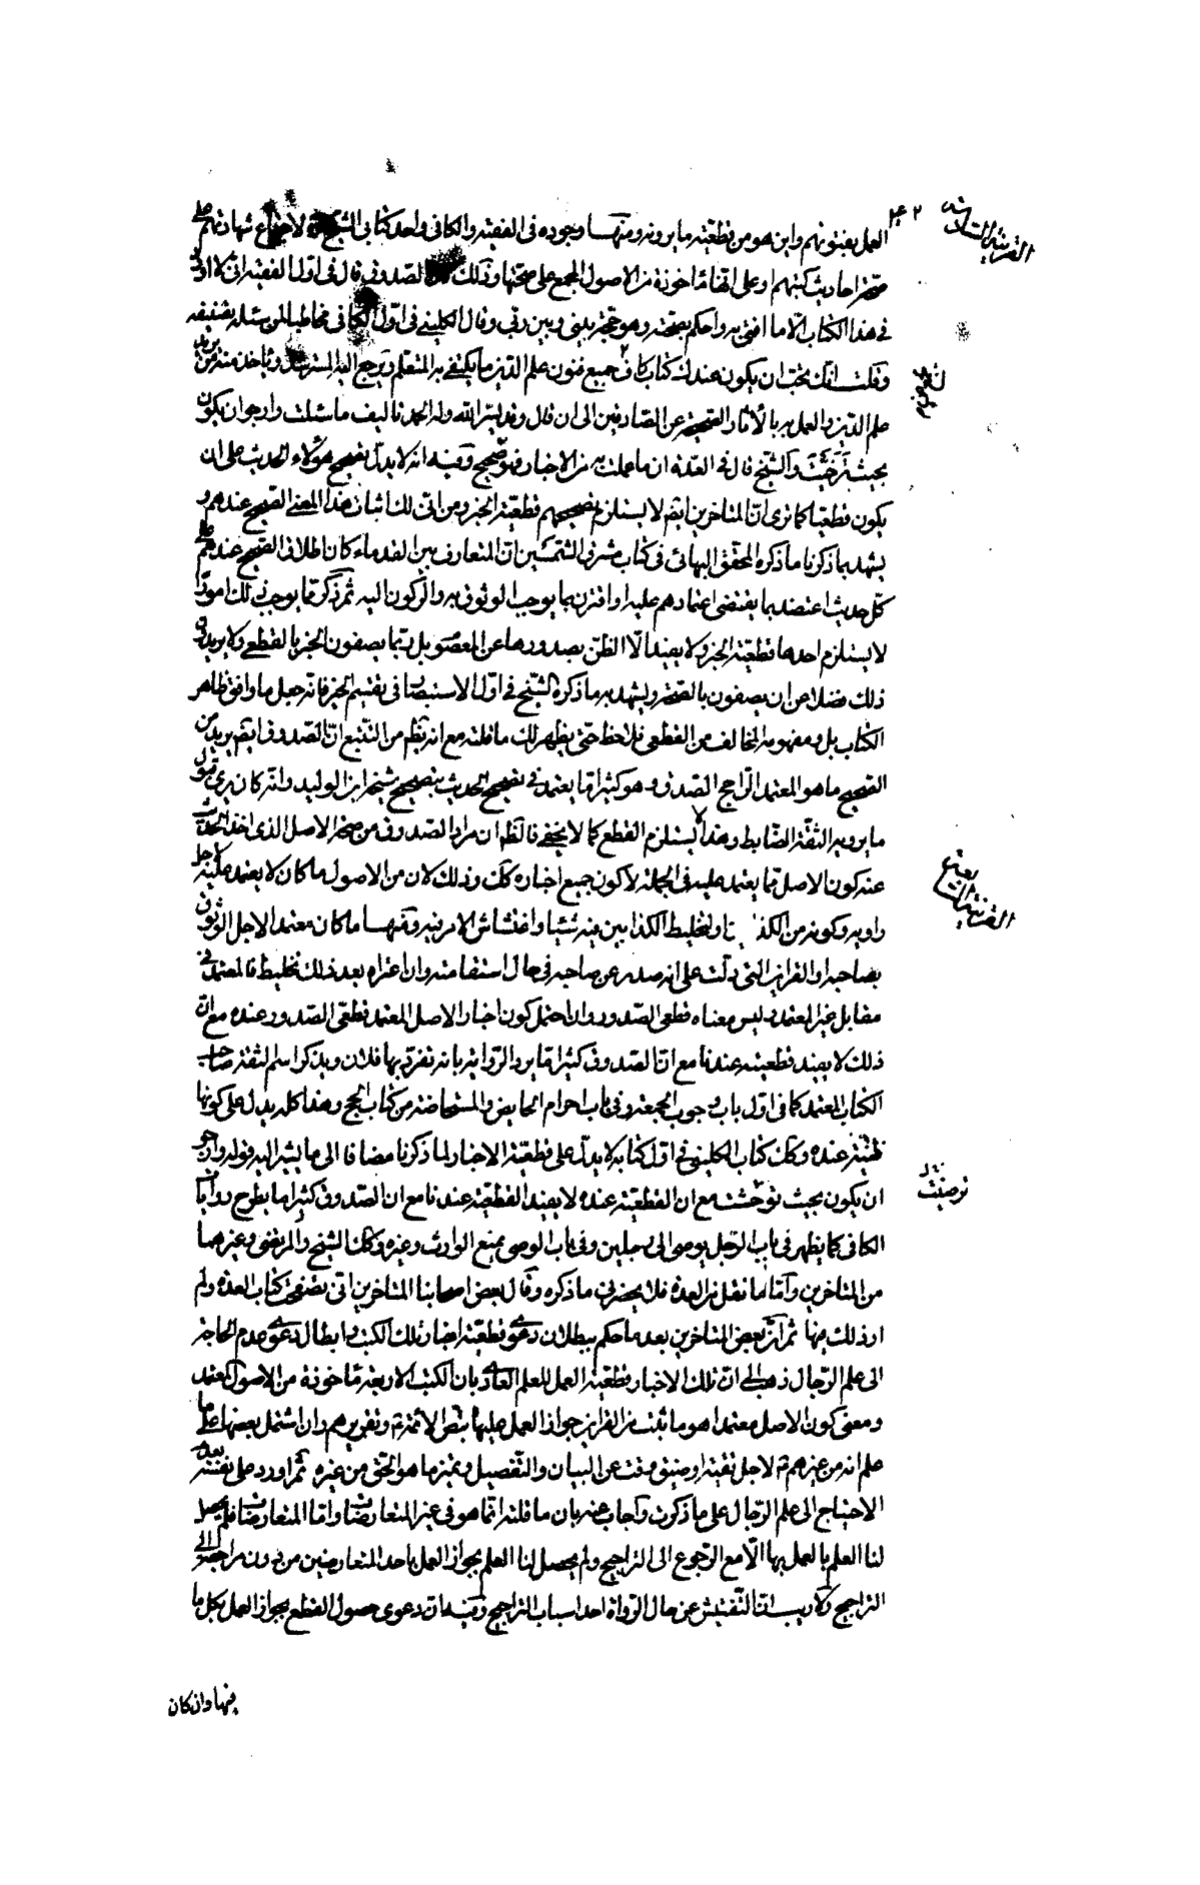 القرينة السادسة
العمل بفتويهم واين هو من قطعية ما يروونه ومنها وجوده فى الفقيه والكافى واحد كتابى الشيخ لاجتماع شهادتهم على
صحة احاديث كتبهم او على انها مأخوذة من الاصول المجمع على صحتها وذلك لان الصدوق قال فى اول الفقيه انى لا اورد
فى هذا الكتاب الا ما افتى به واحكم بصحته وهو حجة بينى وبين ربى وقال الكلينى فى اول الكافى مخاطبا لمن سئله تصنيفه
وقلت انك تحب ان يكون عندك كتاب كاف جميع فنون علم الدين ما يكتفى به المتعلم ويرجع اليه المسترشد وياخذ منه من يريد
علم الدين والعمل به بالآثار الصحيحة عن الصادقين الى ان قال وقد يسر الله وله الحمد تاليف ما سئلت وارجو ان يكون
بحيث توخيت والشيخ قال فى العدة ان ما عملت به من الاخبار فهو صحيح وفيه انه لا يدل تصحيح هؤلاء الحديث على ان
يكون قطعيا كما ترى ان المتاخرين ايضا لا يستلزم تصحيحهم قطعية الخبر ومن اتى لك اثبات هذا المعنى الصحيح عندهم و
يشهد بما ذكرنا ما ذكره المحقق البهائى فى كتاب مشرق الشمسين ان المتعارف بين القدماء كان اطلاق الصحيح عندهم على
كل حديث اعتضد بما يقتضى اعتمادهم عليه او اقترن بما يوجب الوثوق به والركون اليه ثم ذكر مما يوجب ذلك امورا
لا يستلزم احدها قطعية الخبر ولا يفيد الا الظن بصدورها عن المعصوم بل ربما يصفون الخبر بالقطعى ولا يريدون
ذلك فضلا عن ان يصفون بالصحة ويشهد به ما ذكره الشيخ فى اول الاستبصار فى تقسيم الخبر فانه جعل ما وافق ظاهر
الكتاب بل ومفهومه المخالف من القطعى فلاحظ حتى يظهر لك ما قلته مع انه يظهر من التتبع ان الصدوق ايضا يريد من
الصحيح ما هو المعتمد الراجح الصدق وهو كثيرا ما يعتمد فى تصحيح الحديث بتصحيح شيخه ابن الوليد وانه كان يرى قبول
ما يرويه الثقة الضابط وهذا لا يستلزم القطع كما لا يخفى فالظاهر ان مراد الصدوق من صحة الاصل الذى اخذ الحديث
عنه كون الاصل مما يعتمد عليه فى الجملة لا كون جميع اخباره كك وذلك لان من الاصول ما كان لا يعتمد عليه لاجل
راويه وكونه من الكذ نا ولتخليط الكذابين فيه شيئا واغتشاش الامر فيه ومنها ما كان معتمدا لاجل الوثوق
بصاحبه او القراين التى دلت على انه صدر عن صاحبه فى حال استقامته وان اعتراه بعد ذلك تخليط فالمعتمد فى
مقابل غير المعتمد وليس معناه قطعى الصدور وان احتمل كون اخبار الاصل المعتمد قطعى الصدور عنده مع ان
ذلك لا يفيد قطعيته عندنا مع ان الصدوق كثيرا ما يرد الرواية بانه تفرد بها فلان ويذكر اسم الثقة صاحب
الكتاب المعتمد كما فى اول باب وجوب الجمعة وفى باب احرام الحايض والمستحاضة من كتاب الحج وهذا كله يدل على كونها
ظنية عنده وكك كتاب الكلينى فى اول كتابه لا يدل على قطعية الاخبار لما ذكرنا مضافا الى ما يشير اليه قوله وارجو
ان يكون بحيث توخيت مع ان القطعية عنده لا يفيد القطعية عندنا مع ان الصدوق كثيرا ما يطرح روايات
الكافى كما يظهر فى باب الرجل يوصى الى رجلين وفى باب الوصى يمنع الوارث وغيره وكك الشيخ والمرتضى وغيرهما
من المتاخرين وآما ما نقل من العدة فلا يحضرنى ما ذكره وقال بعض اصحابنا المتاخرين انى تصفحت كتاب العدة ولم
ار ذلك فيها ثم ان بعض المتاخرين بعد ما حكم ببطلان دعوى قطعية اخبار تلك الكتب وابطال دعوى عدم الحاجة
الى علم الرجال ذهب الى ان تلك الاخبار قطعية العمل للعلم العادى بان الكتب الاربعة مأخوذة من الاصول المعتمدة
ومعنى كون الاصل معتمدا هو ما يثبت من القراين جواز العمل عليها بنص الائمة وتقريرهم وان اشتمل بعضها على ما
علم انه من غيرهم لاجل تقية او ضيق وقت عن البيان والتفصيل وتميز ما هو الحق من غيره ثم اورد على نفسه بعدم
الاحتياج الى علم الرجال على ما ذكرت وآجاب عنه بان ما قلته انما هو فى غير المتعارضات واما المتعارضات فلم يحصل
لنا العلم بالعمل بها الا مع الرجوع الى التراجيح ولم يحصل لنا العلم بجواز العمل باحد المتعارضين من دون مراجعة الى
التراجيح ولا ريب ان التفتيش عن حال الرواة احد اسباب التراجيح وفيه ان دعوى حصول القطع بجواز العمل بكل ما
القرينة السابعة
توخيت
فيها وان كان